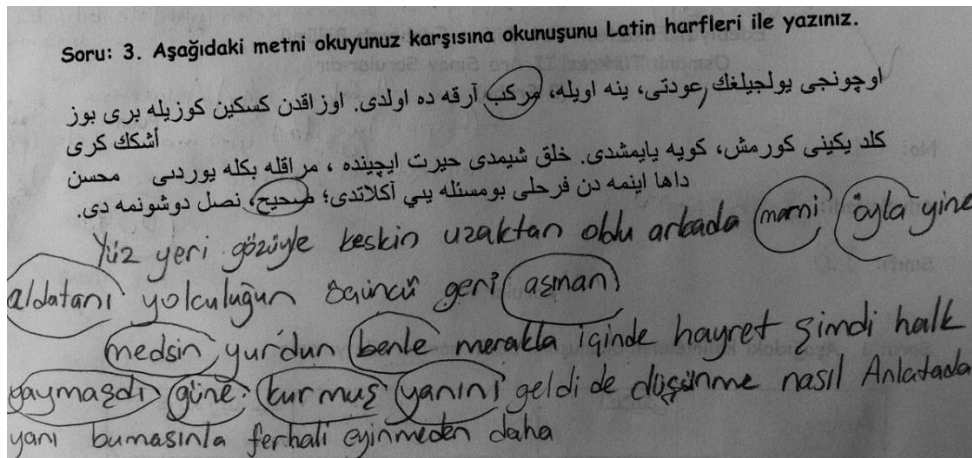 Soru: 3. Aşağıdaki metni okuyunuz karşısına okunuşunu Latin harfleri ile yazınız.
اوچونجی یولجیلغك عودتی، ینه اویله، مركب آرقه ده اولدی. اوزاقدن كسكین كوزیله بری بوز
أشكك كری
كلد یكینی كورمش، كویه یایمشدی. خلق شیمدی حیرت ایچینده ، مراقله بكله یوردی محسن
داها اینمه دن فرحلی بومسئله یی آكلاتدی؛ صحیح، نصل دوشونمه دی.
Yüz yeri gözüyle keskin uzaktan oldu arkada marni öyla yine
aldatanı yolculuğun üçüncü geri asman
medsin yurdun benle merakla içinde hayret şimdi halk
yaymaşdı güne kurmuş yanını geldi de düşünme nasıl Anlatada
yanı bumasınla ferhali eyinmeden daha